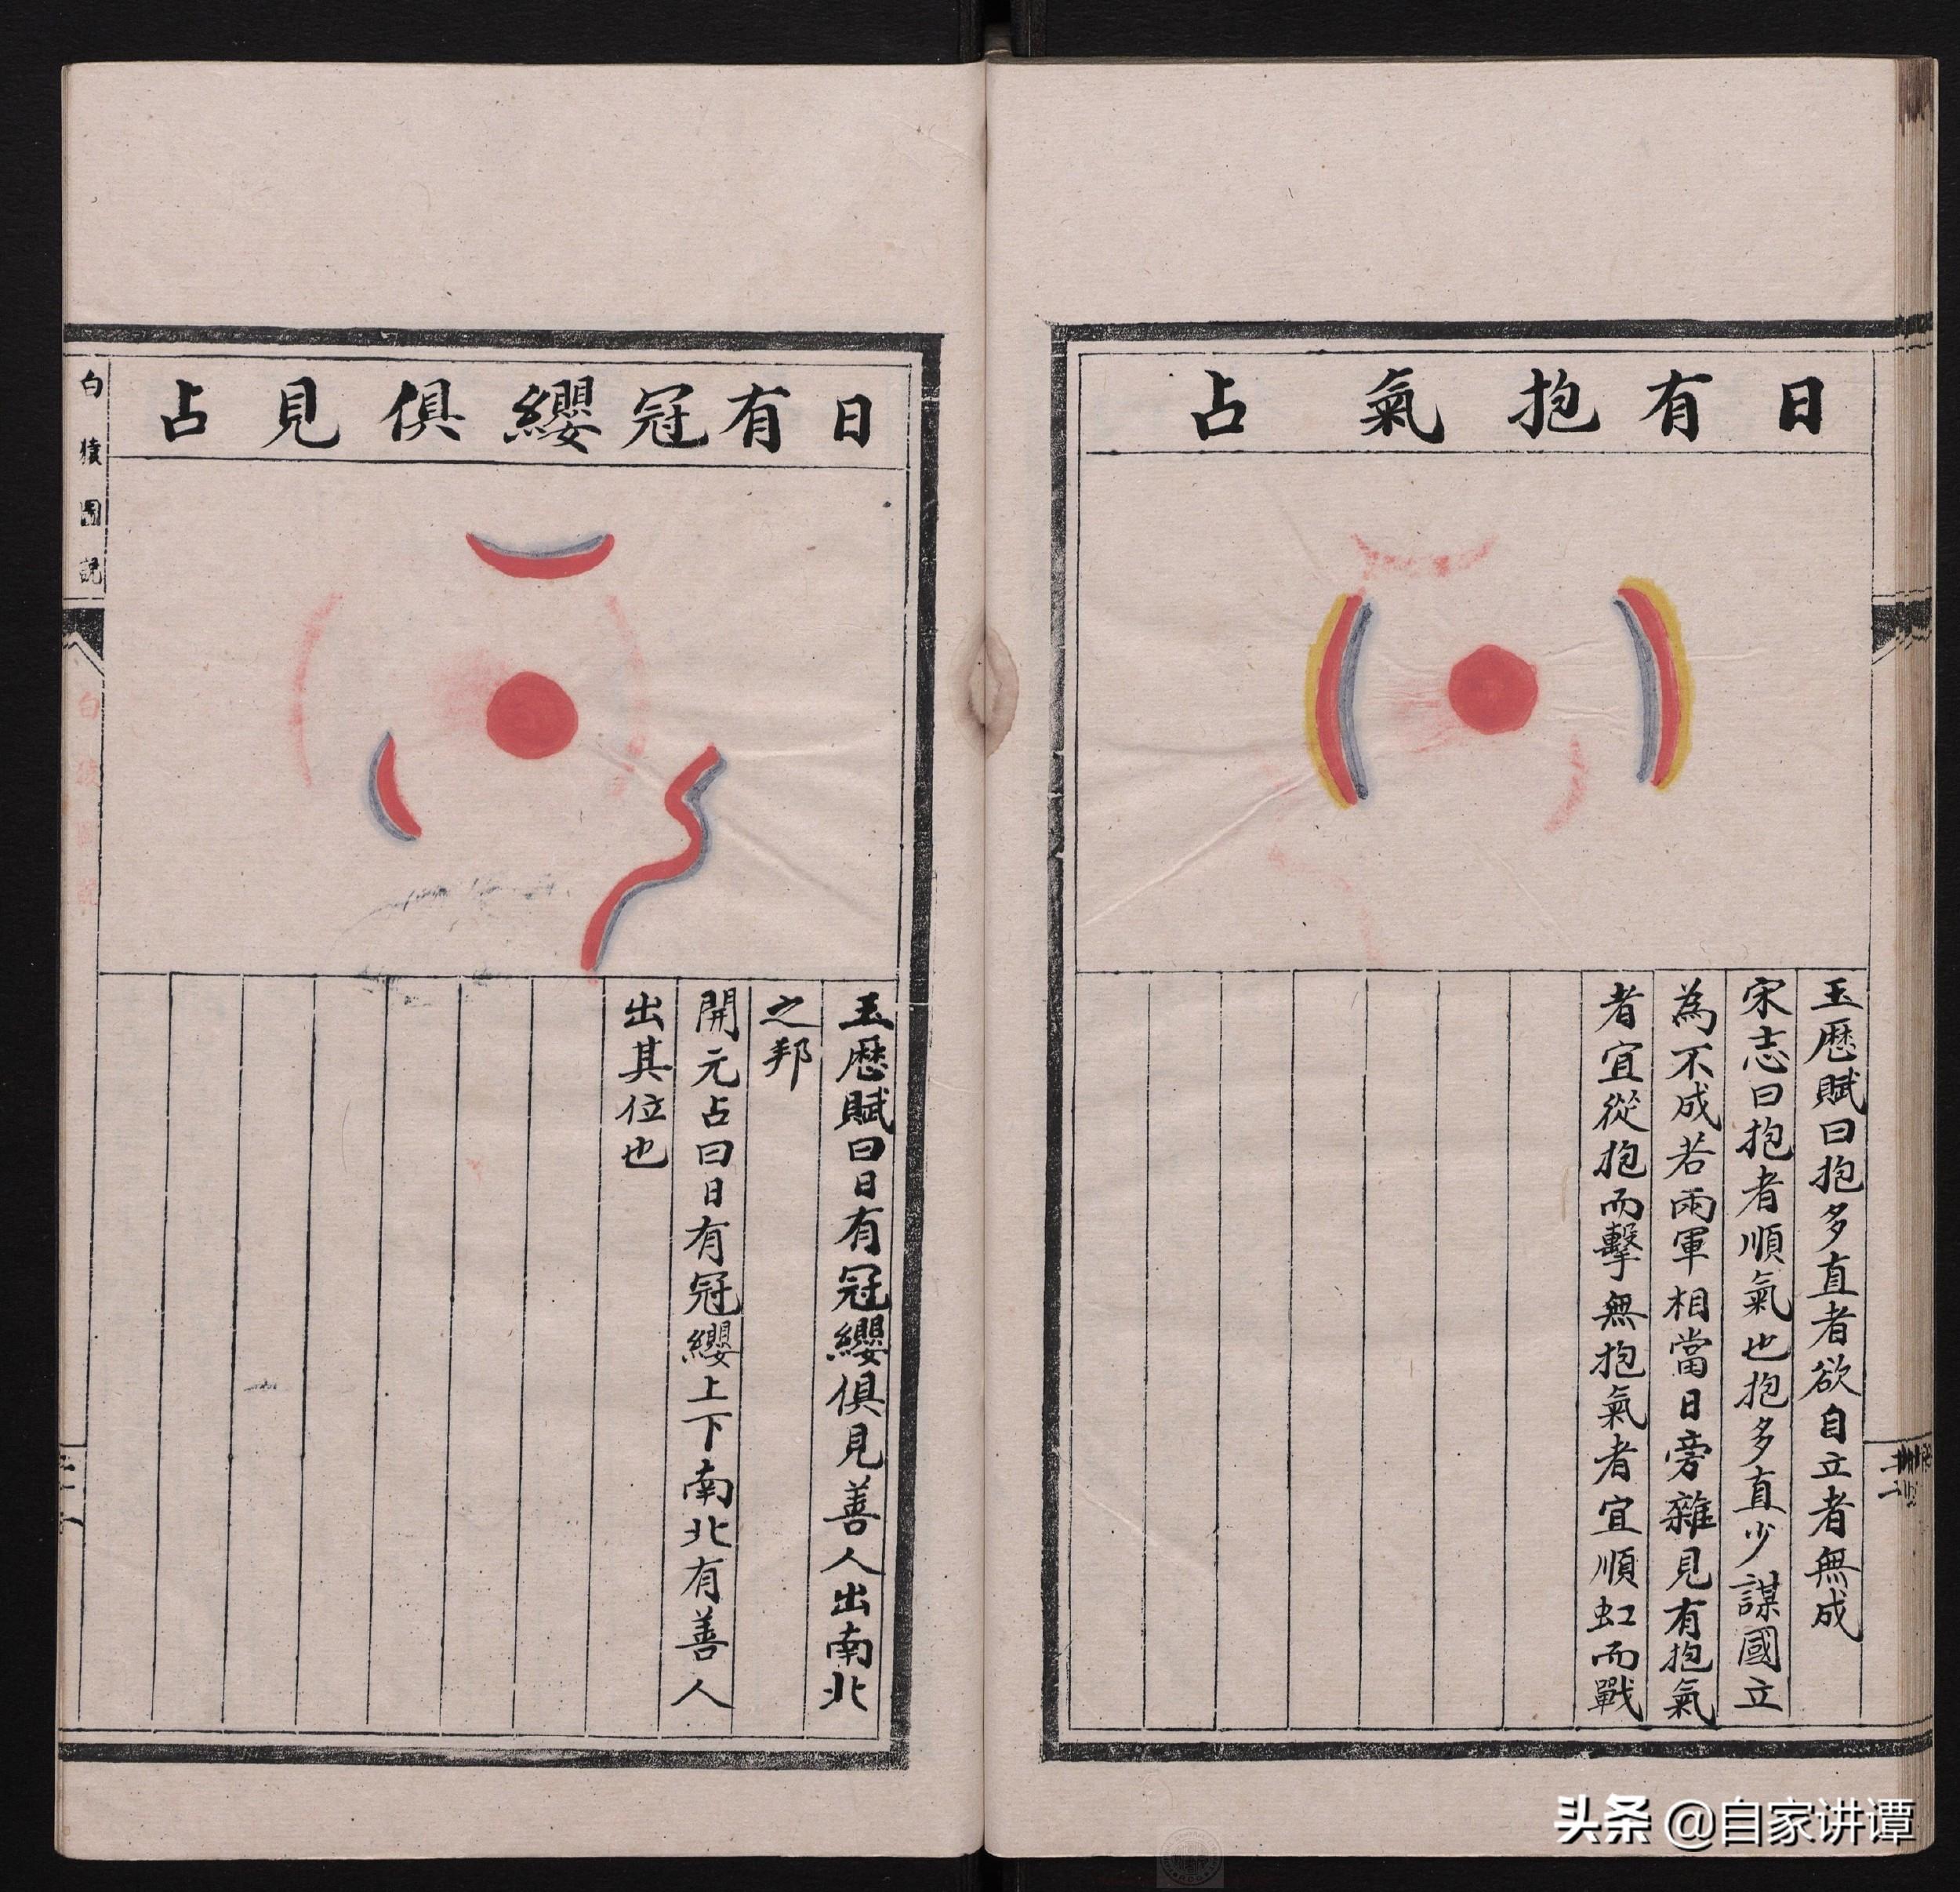 日有抱氣占
玉歷賦曰抱多直者欲自立者無成
宋志曰抱者順氣也抱多直少謀國立
為不成若兩軍相當日旁雜見有抱氣
者宜從抱而擊無抱氣者宜順虹而戰
日有冠纓俱見占
玉歷賦曰日有冠纓俱見善人出南北
之邦
開元占曰日有冠纓上下南北有善人
出其位也
白猿圖說
头条 @自家讲谭